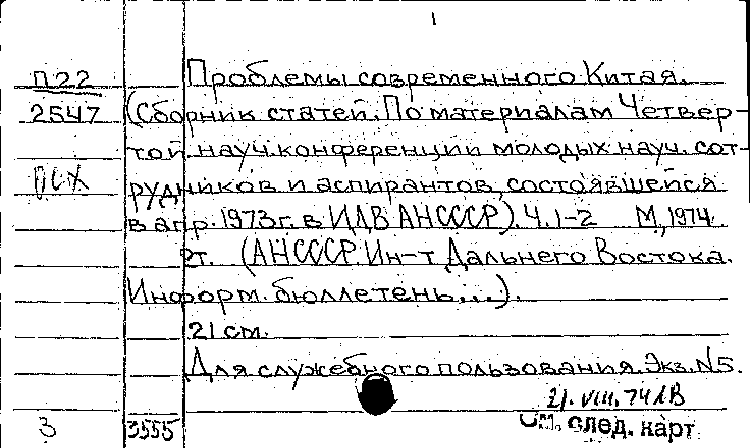 1
П22 Проблемы современного Китая.
2547 (Сборник статей. По материалам Четвер-
той науч. конференции молодых науч. сот-
рудников и аспирантов, состоявшейся
в апр. 1973г. в ИДВ АН СССР). Ч. 1-2 М., 1974.
2т. (АН СССР. Ин-т Дальнего Востока.
Информ. бюллетень,...).
21 см.
Для служебного пользования. Экз. N5.
21.VIII.74 ЛВ
3 3555 См. след. карт